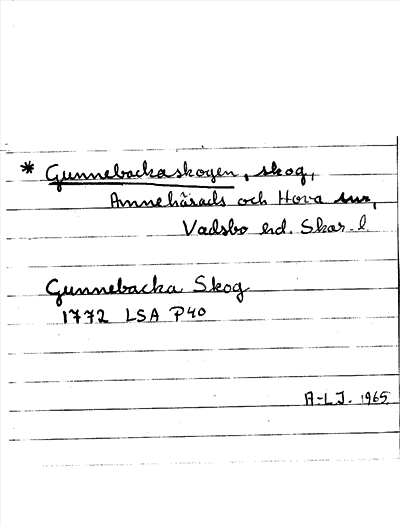 * Gunnebackaskogen, skog,
Amnehärads och Hova snr,
Vadsbo hd. Skar. l
Gunnebacka Skog
1772 LSA P40
A-LJ. 1965